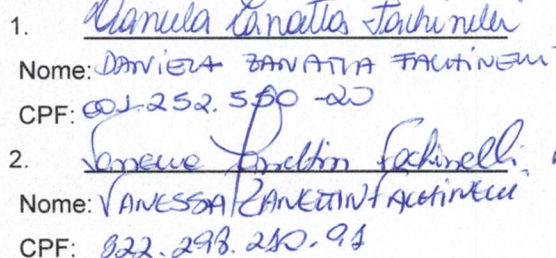 1. Daniela Zanatta Fachinelli
Nome: DANIELA ZANATTA FACHINELLI
CPF: 001.252.550-20
2. Vanessa Zanettin Fachinelli
Nome: VANESSA ZANETTIN FACHINELLI
CPF: 822.298.210.91